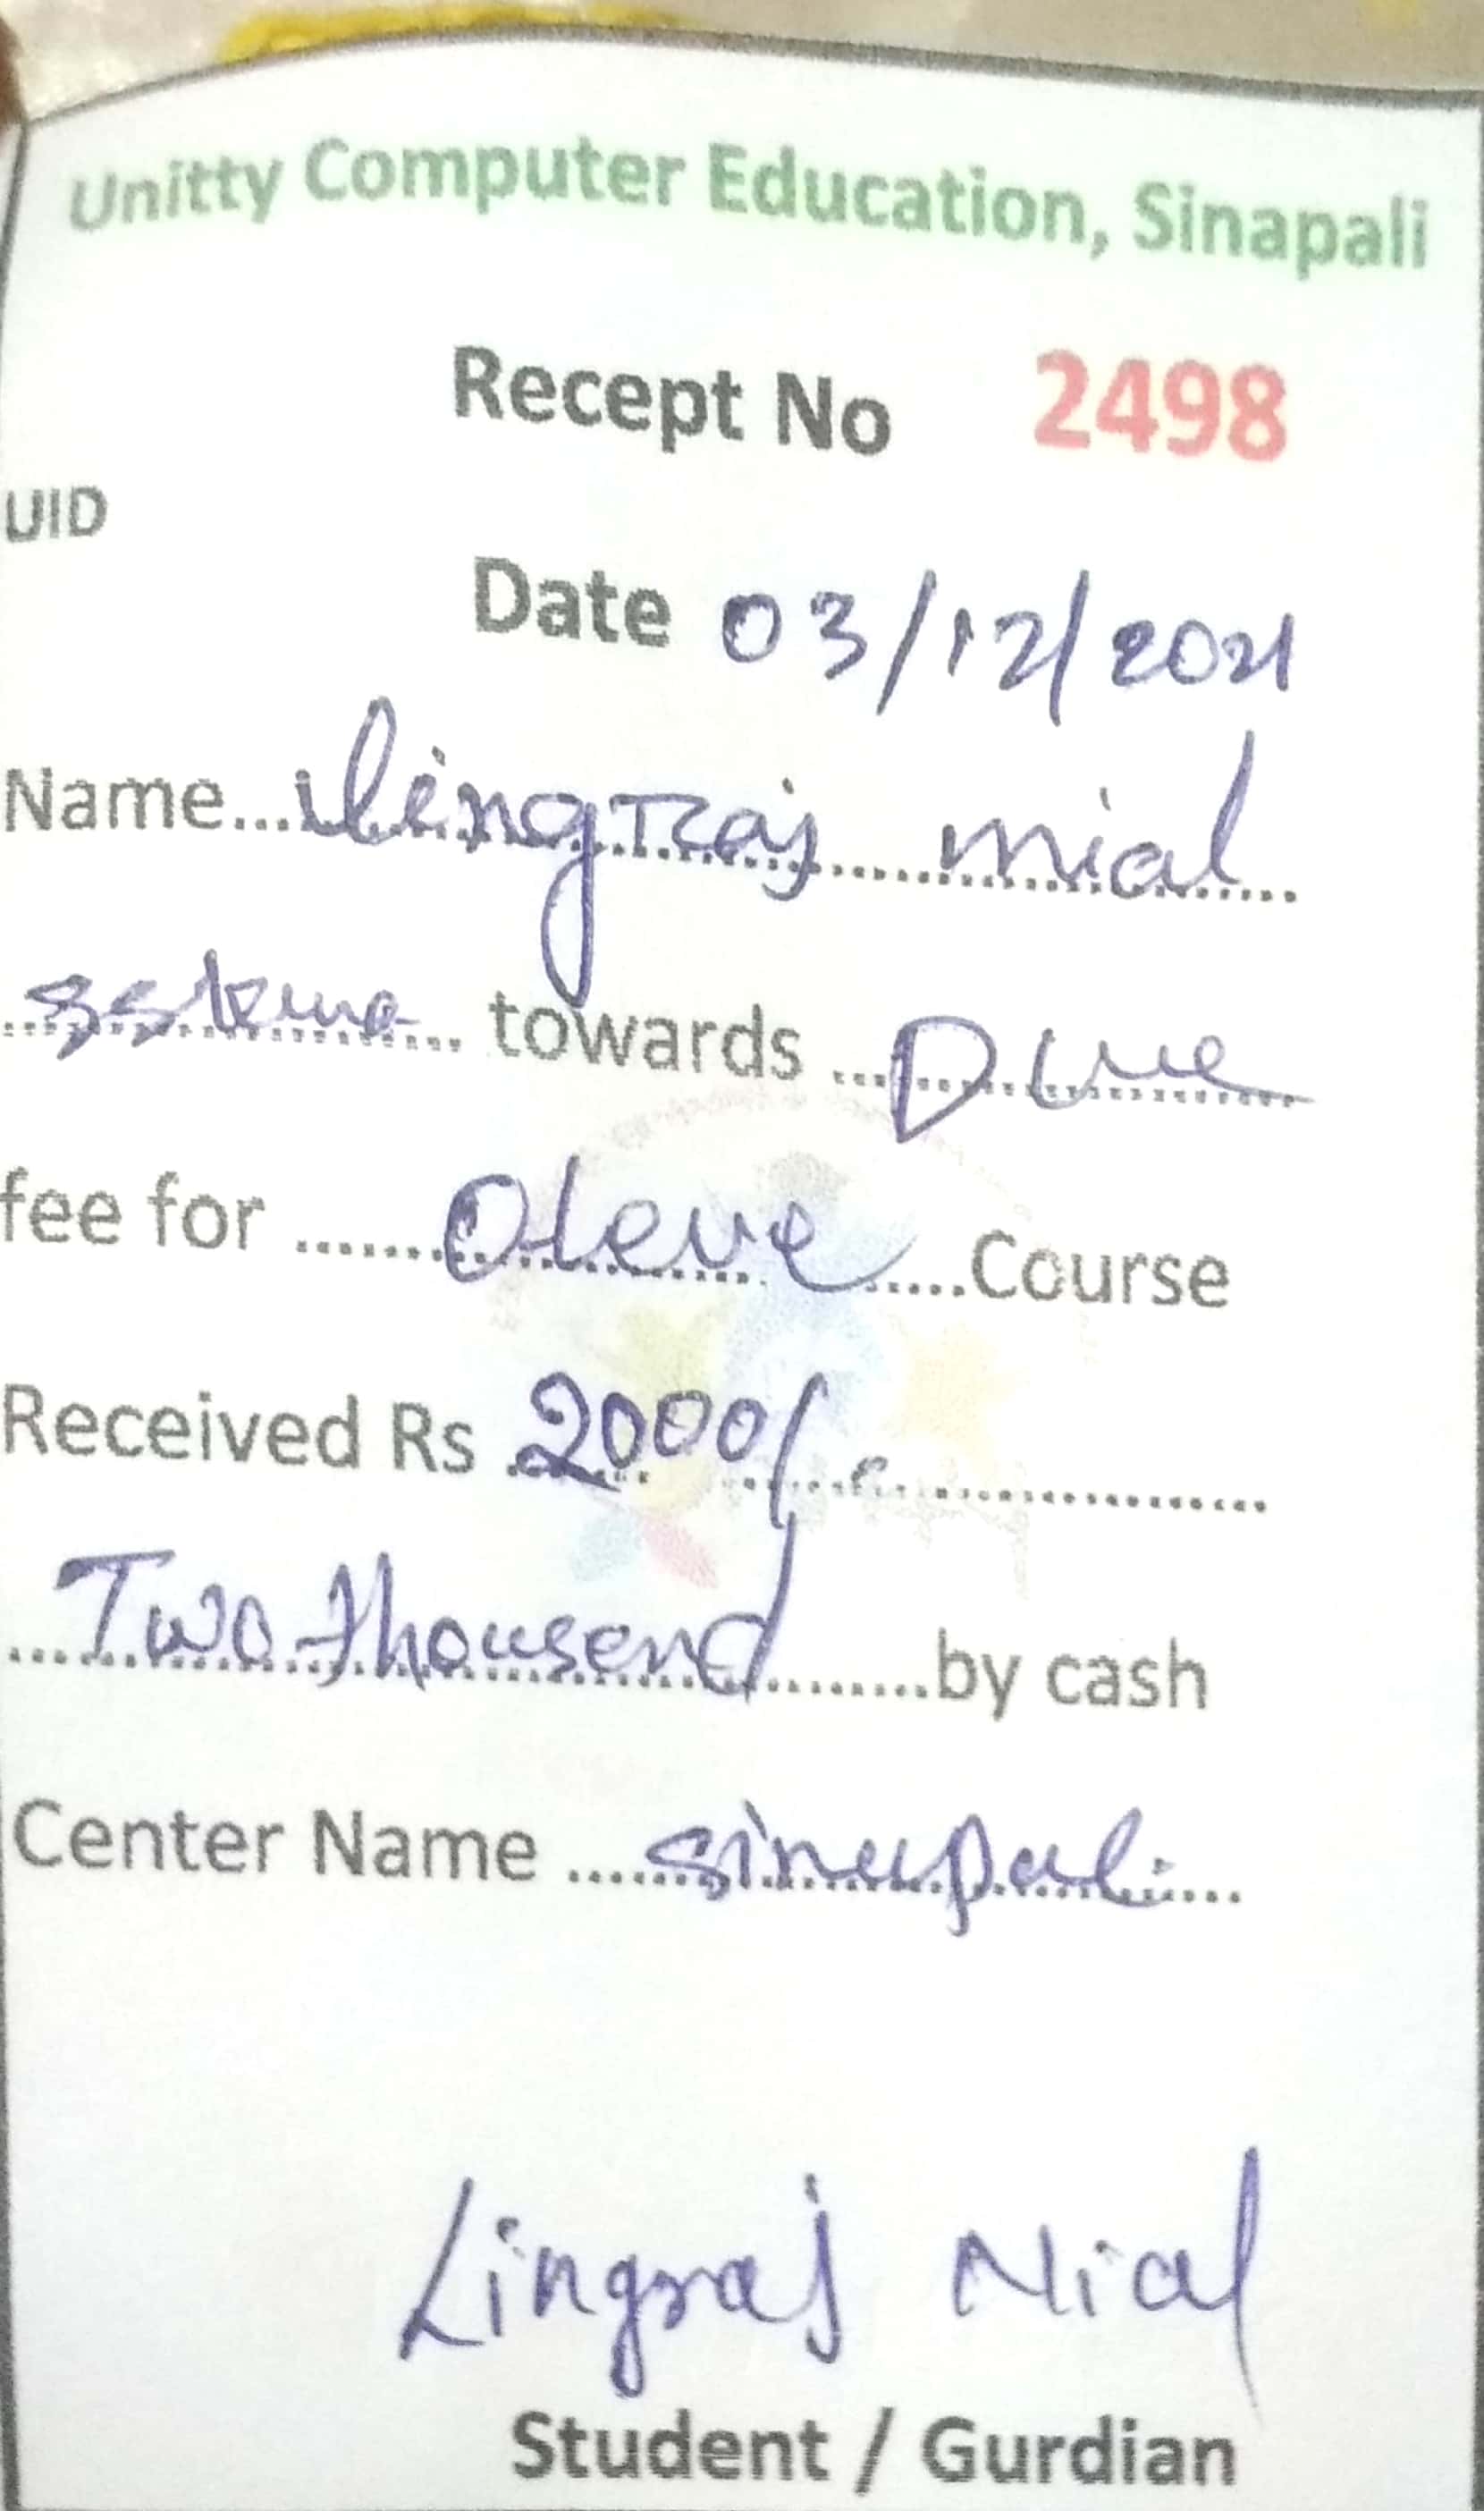 Unitty Computer Education, Sinapali
Recept No 2498
UID
Date 03/12/2021
Name...Lingraj mial
towards Due
fee for ........ Course
Received Rs 2000/-
Two thousend ........by cash
Center Name ....sinapali....
Lingraj Nial
Student / Gurdian